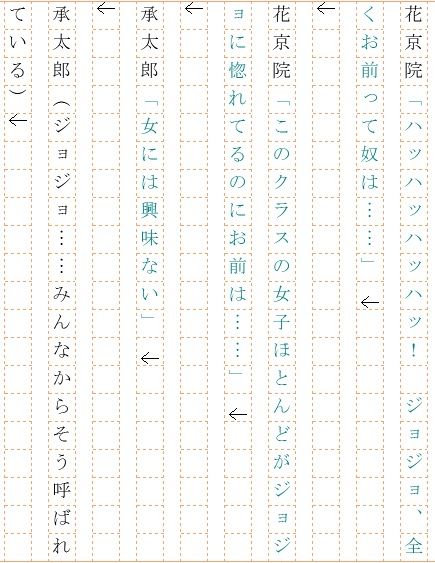 花京院「ハッハッハッハッ！　ジョジョ、全
くお前って奴は……」←
←
花京院「このクラスの女子ほとんどがジョジ
ョに惚れてるのにお前は……」←
←
承太郎「女には興味ない」←
←
承太郎（ジョジョ……みんなからそう呼ばれ
ている）←